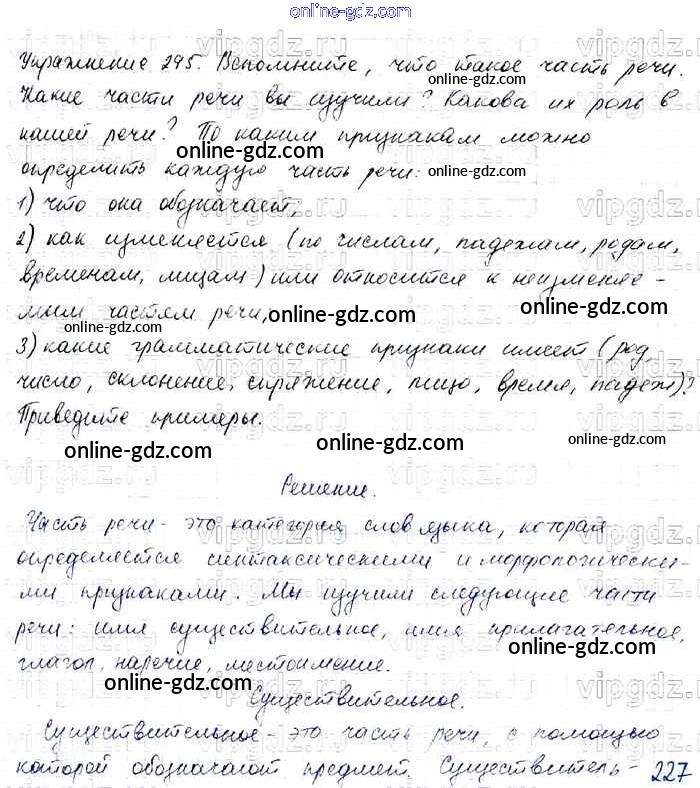 online-gdz.com
Упражнение 295. Вспомните, что такое часть речи.
Какие части речи вы изучили? Какова их роль в
нашей речи? По каким признакам можно
определить каждую часть речи:
1) что она обозначает,
2) как изменяется (по числам, падежам, родам,
временам, лицам) или относится к неизменяе-
мым частям речи,
3) какие грамматические признаки имеет (род,
число, склонение, спряжение, лицо, время, падеж)?
Приведите примеры.
Решение.
Часть речи - это категория слов языка, которая
определяется синтаксическими и морфологически-
ми признаками. Мы изучили следующие части
речи: имя существительное, имя прилагательное,
глагол, наречие, местоимение.
Существительное.
Существительное - это часть речи, с помощью
которой обозначают предмет. Существитель-
227